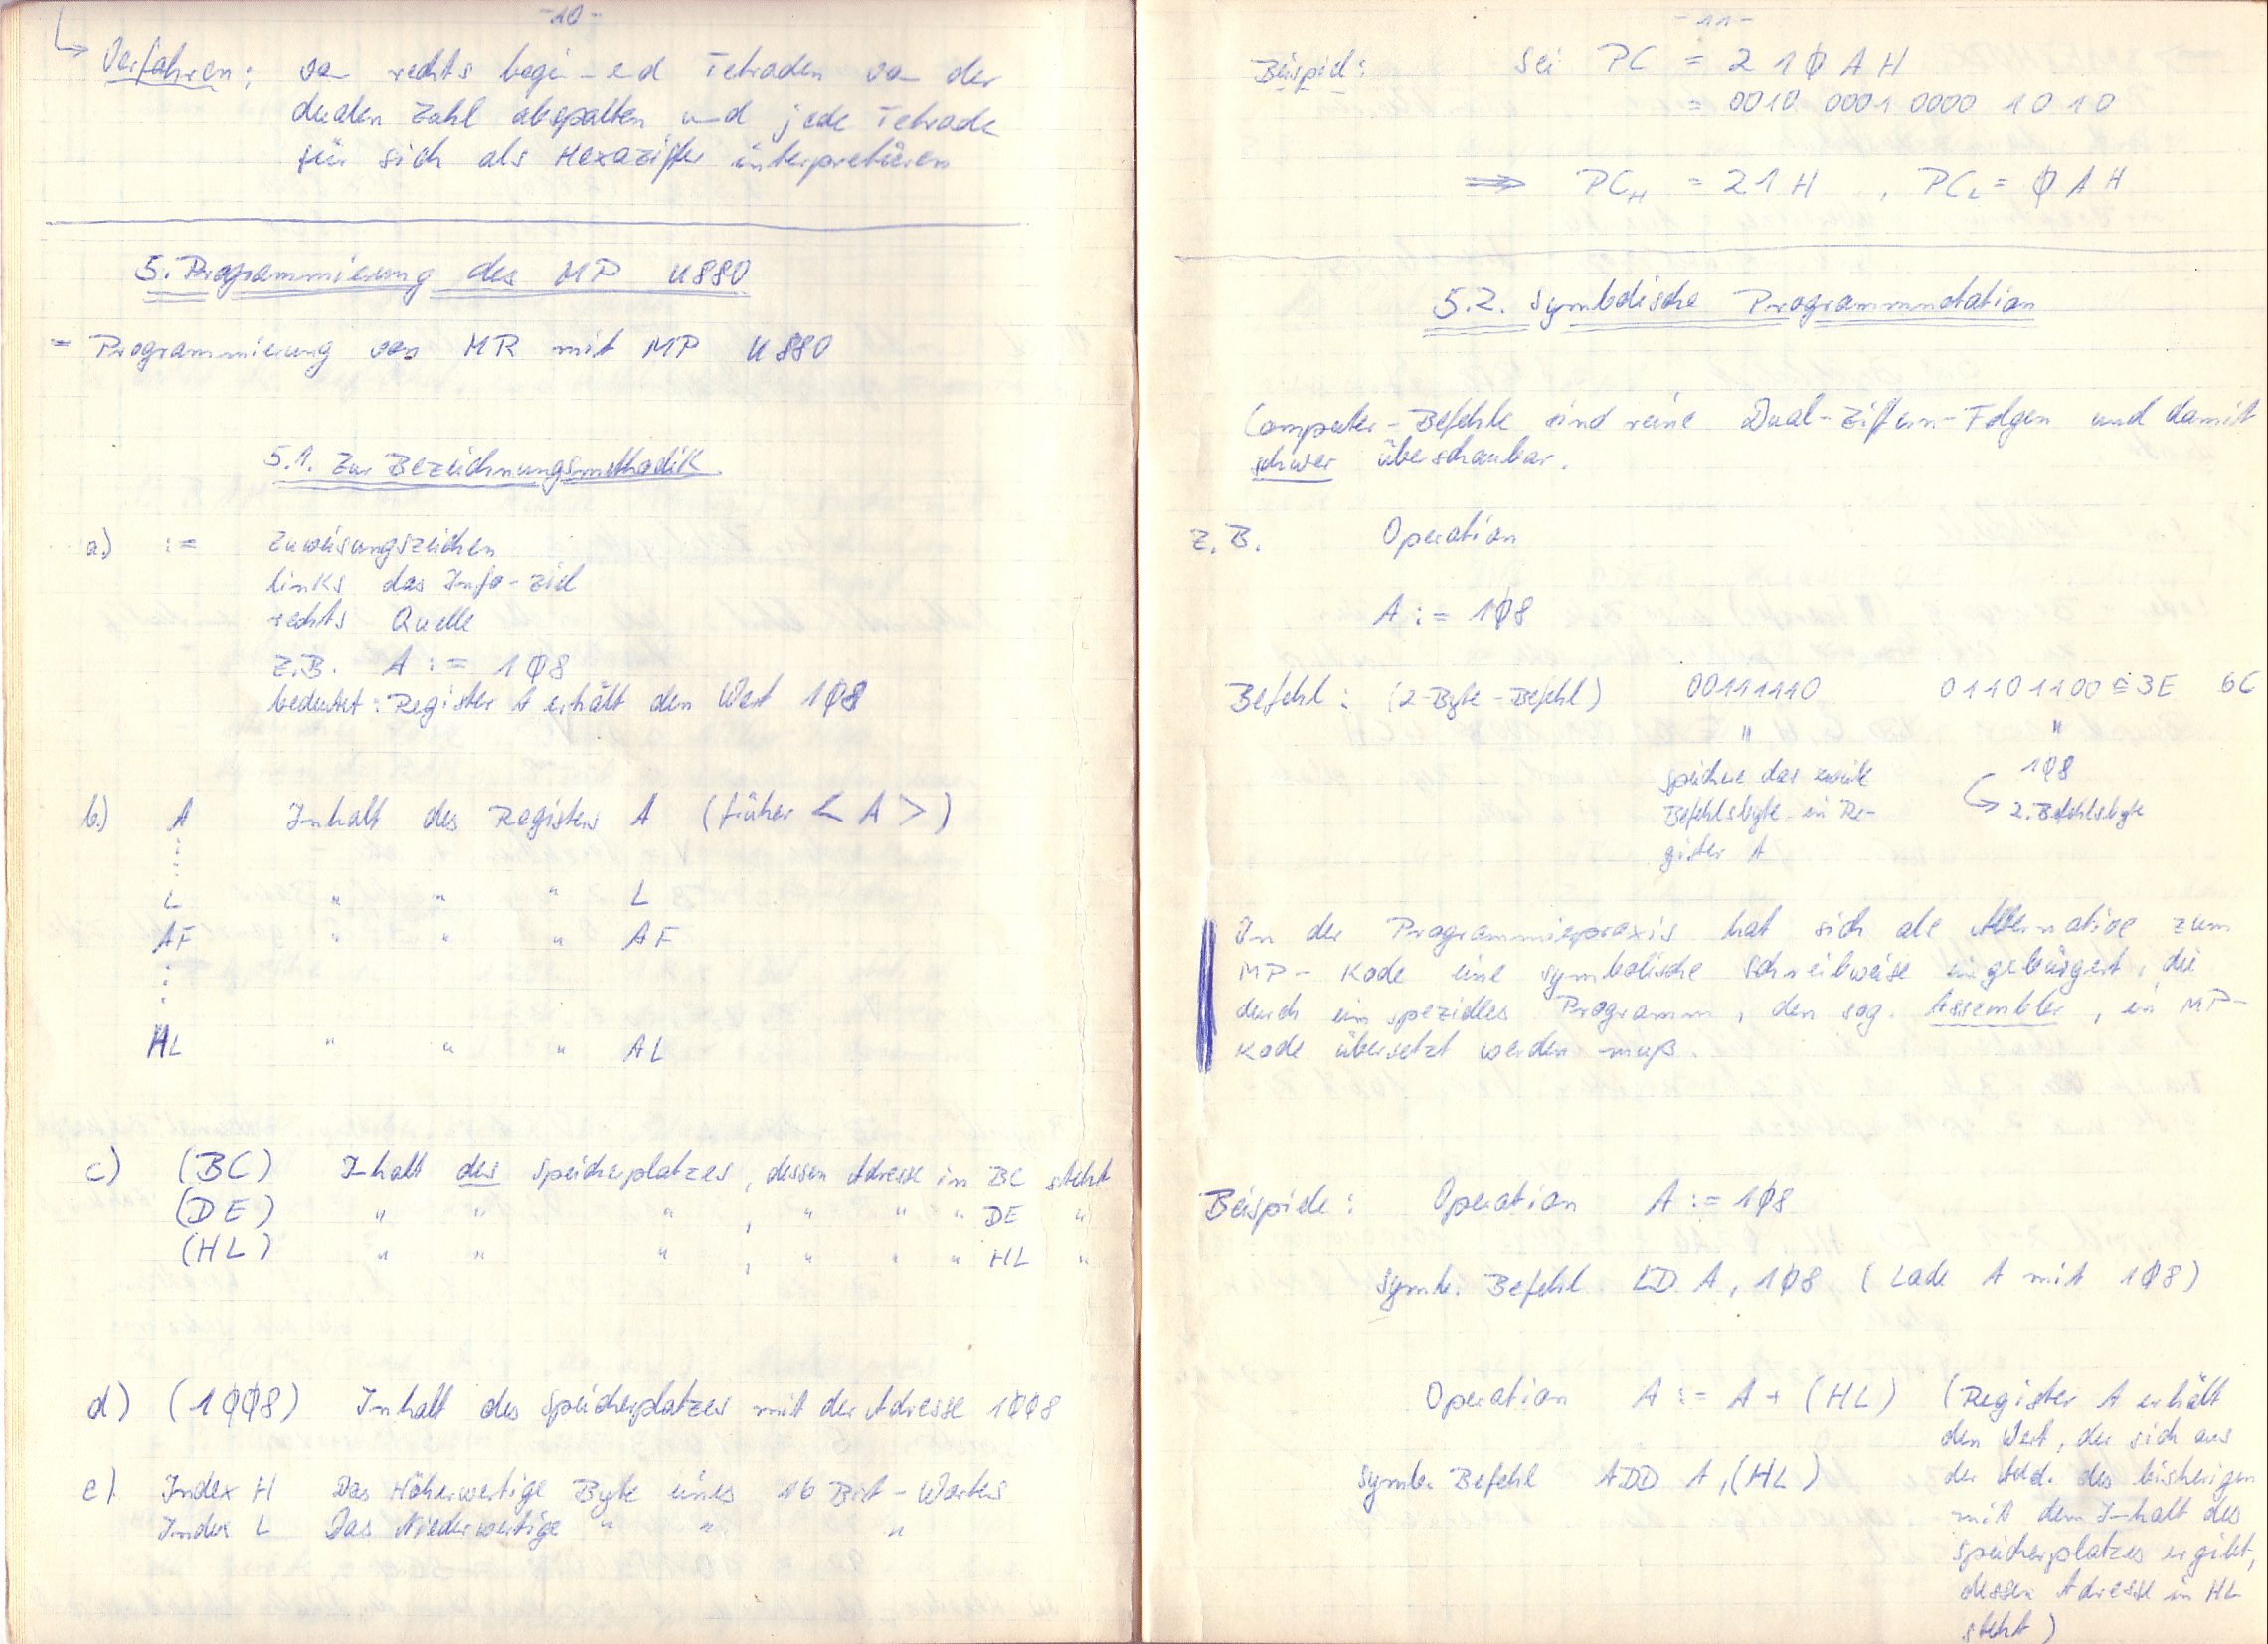 -10-
Verfahren: von rechts beginnend Tetraden von der
dualen Zahl abspalten und jede Tetrade
für sich als Hexaziffer interpretieren
5. Programmierung des MP U880
= Programmierung von MR mit MP U880
5.1. Zur Bezeichnungsmethodik
a.) := Zuweisungszeichen
links das Info-Ziel
rechts Quelle
z.B. A := 1Ø8
bedeutet: Register A erhält den Wert 1Ø8
b.) A Inhalt des Registers A (früher < A >)
⋮
L " " " L
AF " " " AF
⋮
HL " " " AL
c) (BC) Inhalt des Speicherplatzes, dessen Adresse in BC steht
(DE) " " " , " " " DE "
(HL) " " " , " " " HL "
d) (1ØØ8) Inhalt des Speicherplatzes mit der Adresse 1ØØ8
e) Index H Das Höherwertige Byte eines 16 Bit-Wortes
Index L Das Niederwertige " " "
-11-
Beispiel: Sei PC = 21ØAH
= 0010 0001 0000 1010
⇒ PC_H = 21H , PC_L = ØAH
5.2. Symbolische Programmnotation
Computer-Befehle sind reine Dual-Ziffern-Folgen und damit
schwer überschaubar.
z.B. Operation
A := 1Ø8
Befehl: (2-Byte-Befehl) 00111110 01101100 ≙ 3E 6C
" "
speichere das zweite 1Ø8
Befehlsbyte in Re- ↳ 2. Befehlsbyte
gister A
In der Programmierpraxis hat sich als Alternative zum
MP-Kode eine symbolische Schreibweise eingebürgert, die
durch ein spezielles Programm, den sog. Assembler, in MP-
Kode übersetzt werden muß.
Beispiele: Operation A := 1Ø8
Symb. Befehl LD A, 1Ø8 (Lade A mit 1Ø8)
Operation A := A + (HL) (Register A erhält
den Wert, der sich aus
Symb. Befehl ADD A,(HL) der Add. des bisherigen
mit dem Inhalt des
Speicherplatzes ergibt,
dessen Adresse in HL
steht)